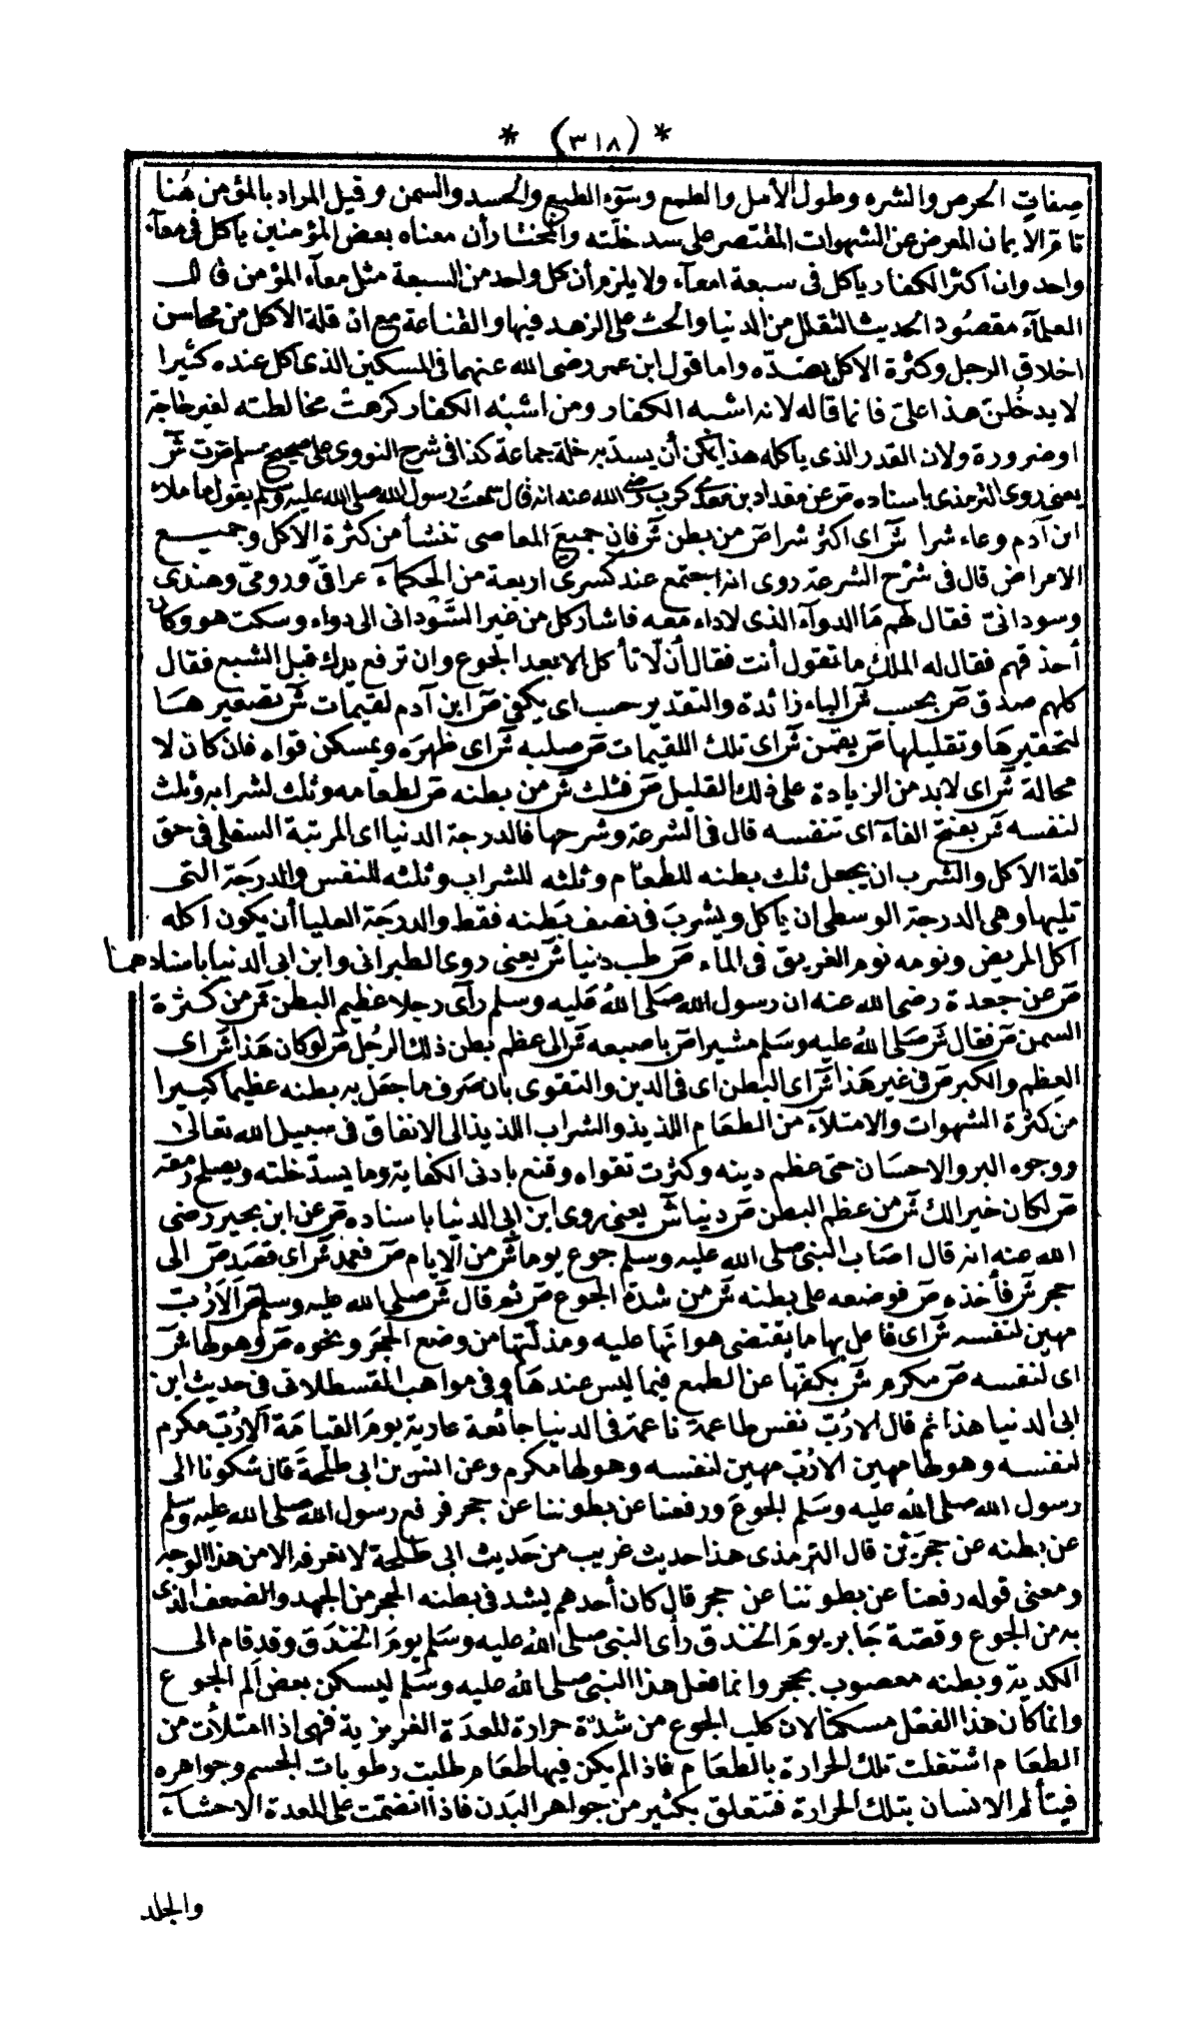 * (٣١٨) *
صفات الحرص والشره وطول الأمل والطمع وسوء الطبع والحسد والسمن وقيل المراد بالمؤمن هنا
تام الايمان المعرض عن الشهوات المقتصر على سد خلته والمختار أن معناه بعض المؤمنين يأكل في معآء
واحد وان اكثر الكفار يأكل في سبعة امعآء ولا يلزم أن كل واحد من السبعة مثل معآء المؤمن قال
العلمآء مقصود الحديث التقلل من الدنيا والحث على الزهد فيها والقناعة مع ان قلة الاكل من محاسن
اخلاق الرجل وكثرة الاكل بضده واما قول ابن عمر رضى الله عنهما في المسكين الذى اكل عنده كثيرا
لا يدخلن هذا علىّ فانما قاله لانه اشبه الكفار ومن اشبه الكفار كرهت مخالطته لغير حاجة
او ضرورة ولان القدر الذى يأكله هذا يمكن أن يسد به خلة جماعة كذا في شرح النووى على صحيح مسلم ص ت ش
يعنى روى الترمذى باسناده ص عن مقداد بن معدى كرب رضى الله عنه انه قال سمعت رسول الله صلى الله عليه وسلم يقول ما ملأ
ابن آدم وعاء شرا ش اى اكثر شرا ص من بطن ش فان جميع المعاصى تنشأ من كثرة الاكل وجميع
الامراض قال في شرح الشرعة روى انه اجتمع عند كسرى اربعة من الحكمآء عراقىّ ورومىّ وهندى
وسودانىّ فقال لهم ما الدوآء الذى لاداء معه فاشار كل من غير السودانى الى دواء وسكت هو وكان
أحذقهم فقال له الملك ما تقول أنت فقال أن لا تأكل الا بعد الجوع وان ترفع يدك قبل الشبع فقال
كلهم صدق ص بحسب ش الباء زائدة والتقدير حسب اى يكفى ص ابن آدم لقيمات ش تصغيرها
لتحقيرها وتقليلها ص يقمن ش اى تلك اللقيمات ص صلبه ش اى ظهره ويمسكن قواه فان كان لا
محالة ش اى لابد من الزيادة على ذلك القليل ص فثلث ش من بطنه ص لطعامه وثلث لشرابه وثلث
لنفسه ش بفتح الفآء اى تنفسه قال في الشرعة وشرحها فالدرجة الدنيا اى المرتبة السفلى في حق
قلة الاكل والشرب ان يجعل ثلث بطنه للطعام وثلثه للشراب وثلثه للنفس والدرجة التى
تليها وهى الدرجة الوسطى ان يأكل ويشرب في نصف بطنه فقط والدرجة العليا أن يكون اكله
اكل المريض ونومه نوم الغريق في الماء ص طب دنيا ش يعنى روى الطبرانى وابن ابى الدنيا باسنادهما
ص عن جعدة رضى الله عنه ان رسول الله صلى الله عليه وسلم رآى رجلا عظيم البطن ش من كثرة
السمن ص فقال ش صلى الله عليه وسلم مشيرا ص باصبعه ش الى عظم بطن ذلك الرجل ص لو كان هذا ش اى
العظم والكبر ص في غير هذا ش اى البطن اى في الدين والتقوى بان صرف ما جعل به بطنه عظيما كبيرا
من كثرة الشهوات والامتلآء من الطعام اللذيذ والشراب اللذيذ الى الانفاق في سبيل الله تعالى
ووجوه البر والاحسان حتى عظم دينه وكثرت تقواه وقنع بادنى الكفاية وما يسد خلته ويصلح رمقه
ص لكان خيرا لك ش من عظم البطن ص دنيا ش يعنى روى ابن ابى الدنيا باسناده ص عن ابن بجير رضى
الله عنه انه قال اصاب النبى صلى الله عليه وسلم جوع يوما ش من الايام ص فعمد ش اى قصد ص الى
حجر ش فأخذه ص فوضعه على بطنه ش من شدة الجوع ص ثم قال ش صلى الله عليه وسلم ص الا رُبّ
مهين لنفسه ش اى فاعل بها ما يقتضى هوانها عليه ومذلتها من وضع الحجر ونحوه ص وهو لها ش
اى لنفسه ص مكرم ش بكفها عن الطمع فيما ليس عندها وفي مواهب القسطلانى في حديث ابن
ابى الدنيا هذا ثم قال الا رُبّ نفس طاعمة ناعمة في الدنيا جائعة عارية يوم القيامة الا رُبّ مكرم
لنفسه وهو لها مهين الا رُبّ مهين لنفسه وهو لها مكرم وعن انس بن ابى طلحة قال شكونا الى
رسول الله صلى الله عليه وسلم الجوع ورفعنا عن بطوننا عن حجر فرفع رسول الله صلى الله عليه وسلم
عن بطنه عن حجرين قال الترمذى هذا حديث غريب من حديث ابى طلحة لا نعرفه الا من هذا الوجه
ومعنى قوله رفعنا عن بطوننا عن حجر قال كان أحدهم يشد في بطنه الحجر من الجهد والضعف الذى
به من الجوع وقصة جابر يوم الخندق رأى النبى صلى الله عليه وسلم يوم الخندق وقد قام الى
الكدية وبطنه معصوب بحجر وانما فعل هذا النبى صلى الله عليه وسلم ليسكن بعض ألم الجوع
وانما كان هذا الفعل مسكنا لان كلب الجوع من شدة حرارة المعدة الغريزية فهى اذا امتلأت من
الطعام اشتغلت تلك الحرارة بالطعام فاذا لم يكن فيها طعام طلبت رطوبات الجسم وجواهره
فيتألم الانسان بتلك الحرارة فتتعلق بكثير من جواهر البدن فاذا انضمت على المعدة الاحشآء
والجلد